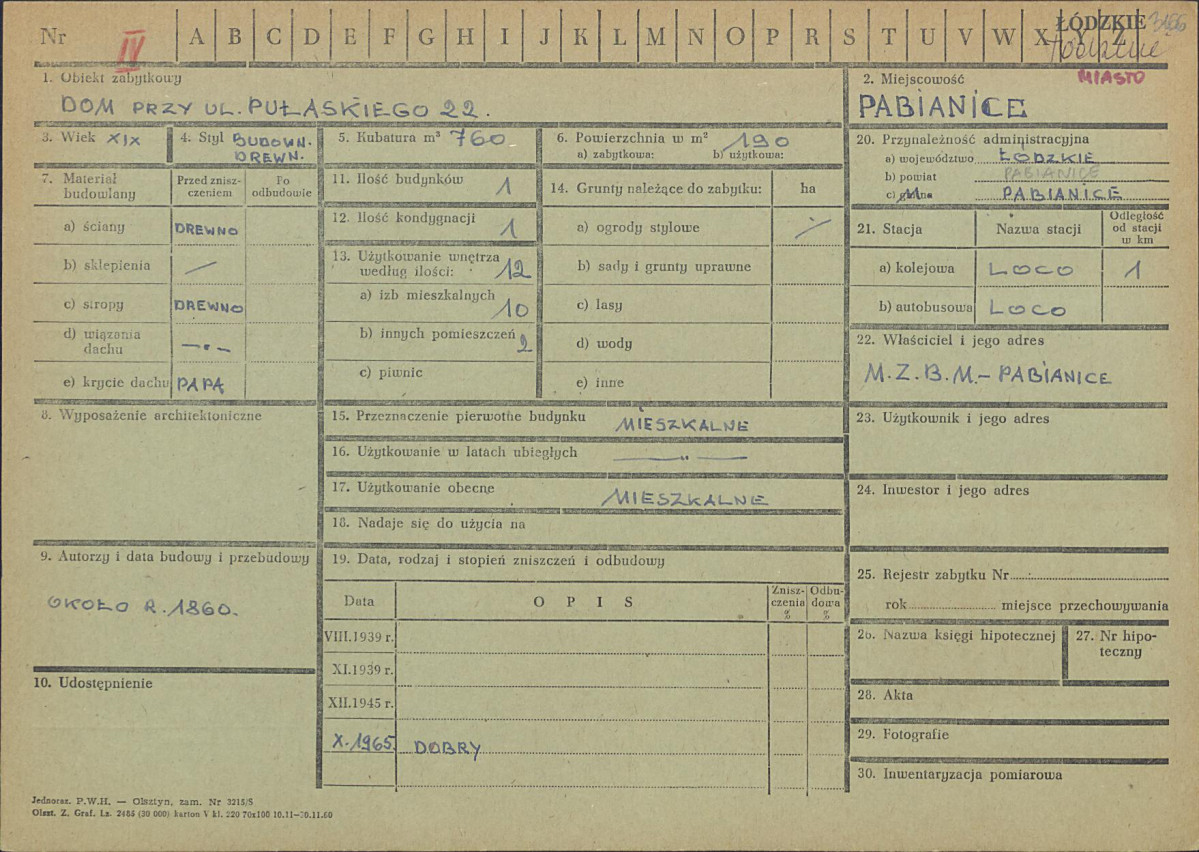 Nr IV A B C D E F G H I J K L M N O P R S T U V W X Y Z ŁÓDZKIE 3166
MIASTO
1. Obiekt zabytkowy
DOM PRZY UL. PUŁASKIEGO 22.
2. Miejscowość
PABIANICE
3. Wiek XIX
4. Styl BUDOWN.
DREWN.
5. Kubatura m³ 760
6. Powierzchnia w m² 190
a) zabytkowa: b) użytkowa:
20. Przynależność administracyjna
a) województwo ŁÓDZKIE
b) powiat PABIANICE
c) gmina M PABIANICE
7. Materiał
budowlany
Przed znisz-
czeniem
Po
odbudowie
a) ściany DREWNO
b) sklepienia —
c) stropy DREWNO
d) wiązania
dachu —„—
e) krycie dachu PAPA
11. Ilość budynków 1
12. Ilość kondygnacji 1
13. Użytkowanie wnętrza
według ilości: 12
a) izb mieszkalnych 10
b) innych pomieszczeń 2
c) piwnic
14. Grunty należące do zabytku: ha
a) ogrody stylowe
b) sady i grunty uprawne
c) lasy
d) wody
e) inne
21. Stacja Nazwa stacji
Odległość
od stacji
w km
a) kolejowa LOCO 1
b) autobusowa LOCO
22. Właściciel i jego adres
M.Z.B.M. – PABIANICE
8. Wyposażenie architektoniczne
15. Przeznaczenie pierwotne budynku MIESZKALNE
16. Użytkowanie w latach ubiegłych —„—
17. Użytkowanie obecne MIESZKALNE
18. Nadaje się do użycia na
23. Użytkownik i jego adres
24. Inwestor i jego adres
9. Autorzy i data budowy i przebudowy
OKOŁO R. 1860.
10. Udostępnienie
19. Data, rodzaj i stopień zniszczeń i odbudowy
Data O P I S
Znisz-
czenia
%
Odbu-
dowa
%
VIII.1939 r.
XI.1939 r.
XII.1945 r.
X.1965. DOBRY
25. Rejestr zabytku Nr
rok miejsce przechowywania
26. Nazwa księgi hipotecznej
27. Nr hipo-
teczny
28. Akta
29. Fotografie
30. Inwentaryzacja pomiarowa
Jednoraz. P.W.H. — Olsztyn, zam. Nr 3215/S
Olszt. Z. Graf. Lz. 2486 (30 000) karton V kl. 220 70x100 10.11—30.11.60